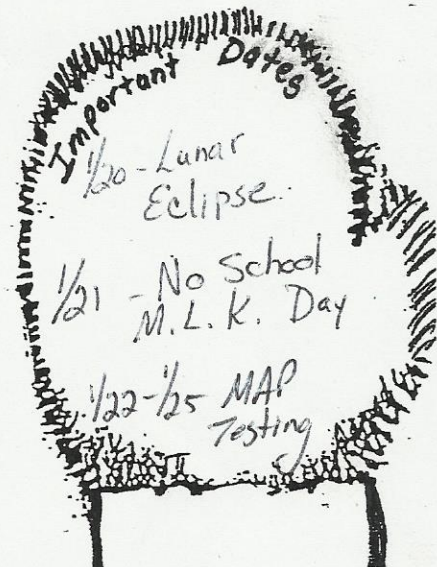 Important Dates
1/20 - Lunar
Eclipse.
1/21 - No School
M.L.K. Day
1/22-1/25 MAP
Testing